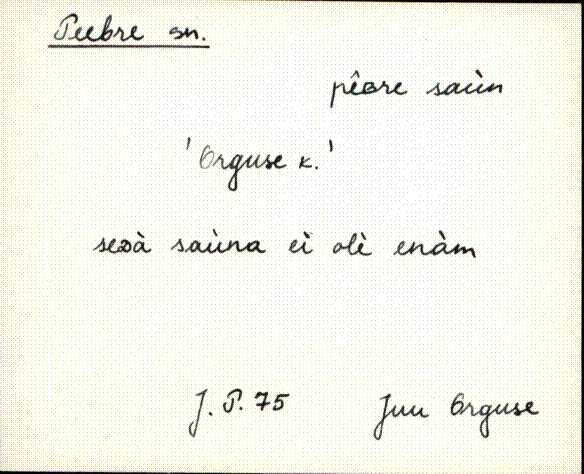 Peebre sn.
pêʙre saùn
'Orguse k.'
seᴅà saùna ei olè enàm
J. P. 75 Juu Orguse